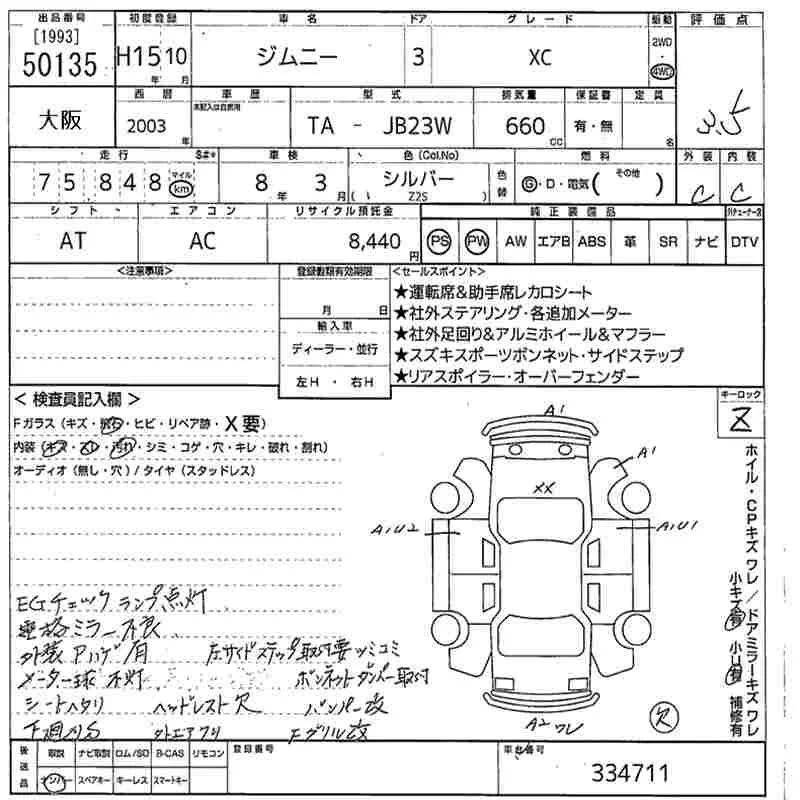 出品番号 初度登録 車名 ドア グレード 駆動 評価点
[1993]
50135 H15年 10月 ジムニー 3 XC 2WD・4WD
3.5
大阪 西暦 車歴 型式 排気量 保証書 定員
未記入は自家用
2003年 TA - JB23W 660cc 有・無 名
走行 S#* 車検 色(Col.No) 燃料 外装 内装
75848 マイル km 8年 3月 シルバー 色替 G・D・電気( その他 ) C C
( Z2S )
シフト エアコン リサイクル預託金 純正装備品 地デジチューナー済
AT AC 8,440円 PS PW AW エアB ABS 革 SR ナビ DTV
<注意事項> 登録書類有効期限 <セールスポイント>
月 日
★運転席&助手席レカロシート
★社外ステアリング・各追加メーター
輸入車
★社外足回り&アルミホイール&マフラー
ディーラー・並行
★スズキスポーツボンネット・サイドステップ
左H・右H
★リアスポイラー・オーバーフェンダー
キーロック
<検査員記入欄>
Fガラス(キズ・飛石・ヒビ・リペア跡・X要)
内装(キズ・スレ・汚れ・シミ・コゲ・穴・キレ・破れ・割れ)
オーディオ(無し・穴)/タイヤ(スタッドレス)
A1
A1
XX
A1U2 A1U1
A2ワレ
欠
ホイル・CPキズワレ/ドアミラーキズワレ
小キズ有 小U有 補修有
EGチェックランプ点灯
運格ミラー不良
外装アハゲ/用 左サイドステップ取付要ツミコミ
メーター球不灯 ボンネットダンパー取付
シートヘタリ ヘッドレスト欠 バンパー改
下廻りS 社外エアクリ Fグリル改
後送品 取説 ナビ取説 ロム/SD B-CAS リモコン 登録番号 車台番号
ナンバー スペアキー キーレス スマートキー
334711